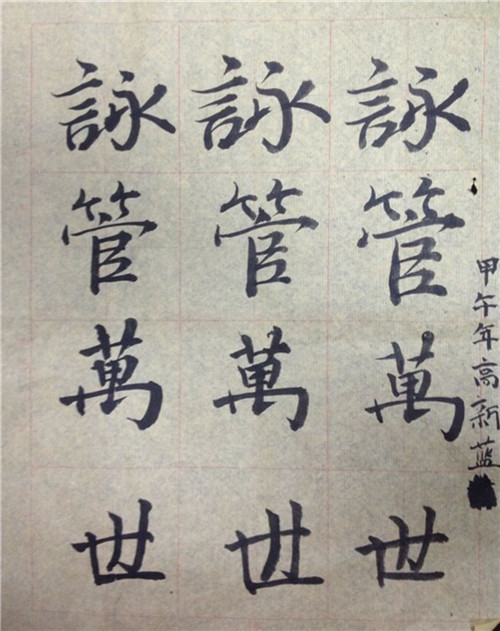 甲午年高新蓝
詠管萬世
詠管萬世
詠管萬世